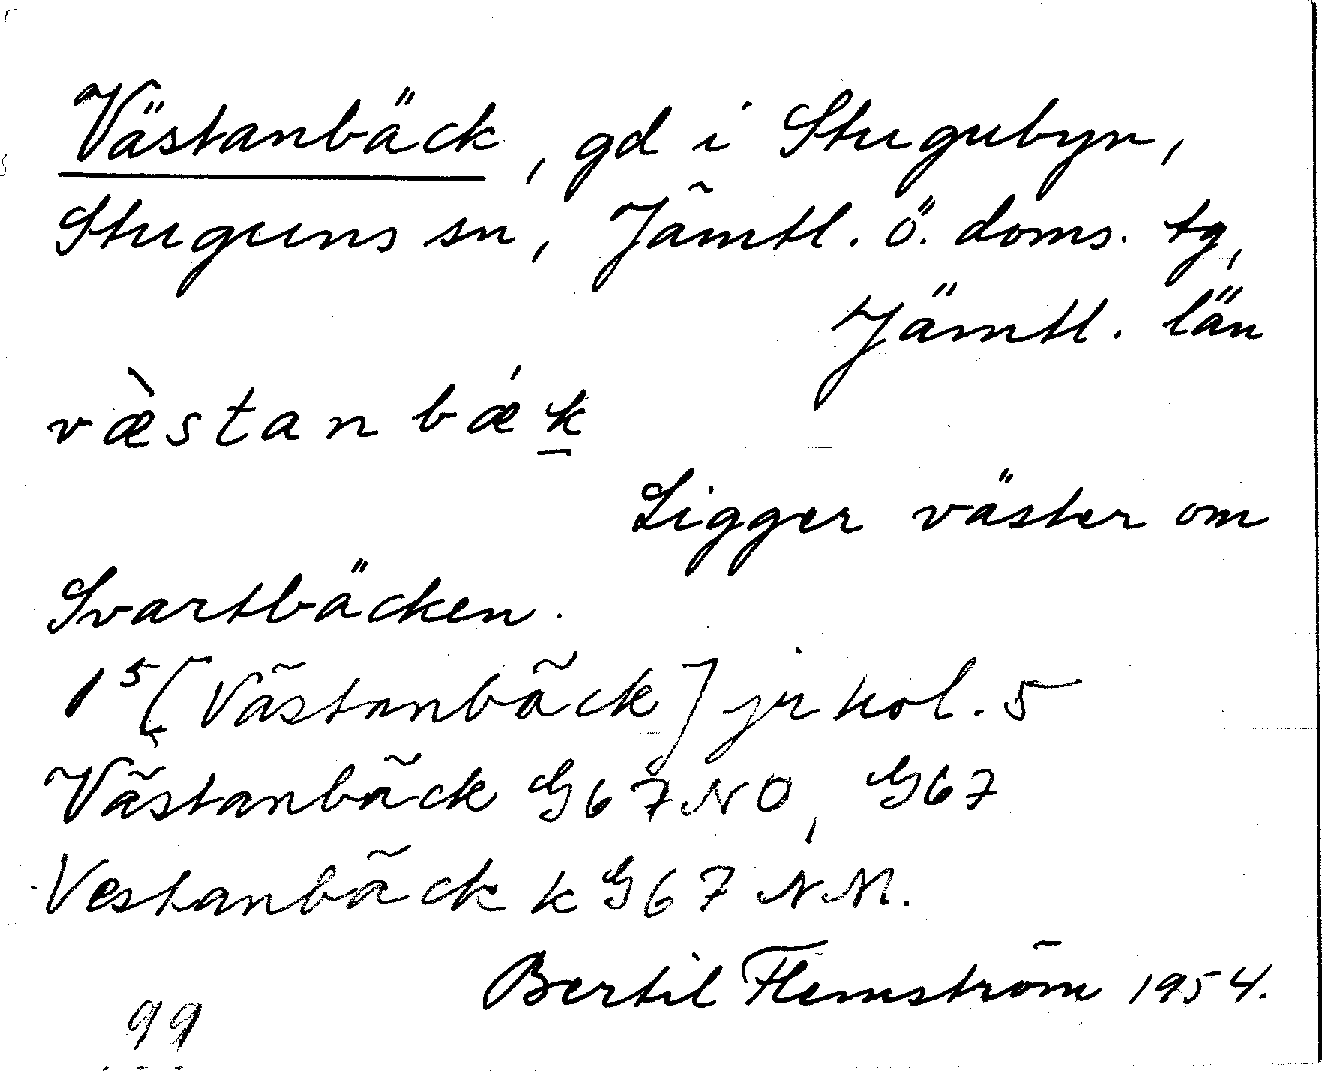 Västanbäck, gd i Stugubyn,
Stuguns sn, Jämtl. ö. doms. tg,
Jämtl. län
væ̀stanbǽk̲
Ligger väster om
Svartbäcken.
1⁵ [Västanbäck] jr kol. 5
Västanbäck G67NO, G67
Vestanbäck k G67 NM.
Bertil Flemström 1954.
99